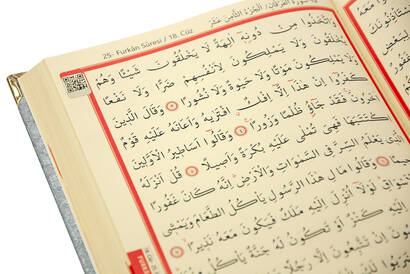 25- Furkân Sûresi / 18. Cüz
وَاتَّخَذُوا مِنْ دُونِهِٓ اٰلِهَةً لَا يَخْلُقُونَ شَيْـًٔا وَهُمْ
يُخْلَقُونَ وَلَا يَمْلِكُونَ لِاَنْفُسِهِمْ ضَرًّا وَلَا نَفْعًا
وَلَا يَمْلِكُونَ مَوْتًا وَلَا حَيٰوةً وَلَا نُشُورًا ٣ وَقَالَ الَّذِينَ
كَفَرُٓوا اِنْ هٰذَٓا اِلَّٓا اِفْكٌ افْتَرٰيهُ وَاَعَانَهُ عَلَيْهِ قَوْمٌ
اٰخَرُونَ فَقَدْ جَٓاؤُ ظُلْمًا وَزُورًا ٤ وَقَالُٓوا اَسَاطِيرُ الْاَوَّلِينَ
اكْتَتَبَهَا فَهِيَ تُمْلٰى عَلَيْهِ بُكْرَةً وَاَصِيلًا ٥ قُلْ اَنْزَلَهُ
الَّذِي يَعْلَمُ السِّرَّ فِي السَّمٰوَاتِ وَالْاَرْضِ اِنَّهُ كَانَ غَفُورًا
٦ وَقَالُوا مَالِ هٰذَا الرَّسُولِ يَأْكُلُ الطَّعَامَ وَيَمْشِي
لَوْلَٓا اُنْزِلَ اِلَيْهِ مَلَكٌ فَيَكُونَ مَعَهُ نَذِيرًا ٧
اِلَيْهِ كَنْزٌ اَوْ تَكُونُ لَهُ جَنَّةٌ يَأْكُلُ